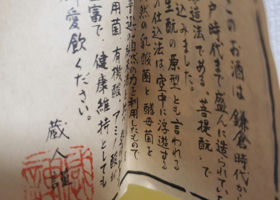 このお酒は鎌倉時代から
戸時代まで盛んに造られてい
造法である、菩提酛、で
込みました。
生酛の原型とも言われる
仕込法は空中に浮遊する
然の乳酸菌と酵母菌と
自然の力を利用したもので
用菌 有機酸 アミノ酸が
富で、健康維持としても
愛飲ください。
蔵人謹